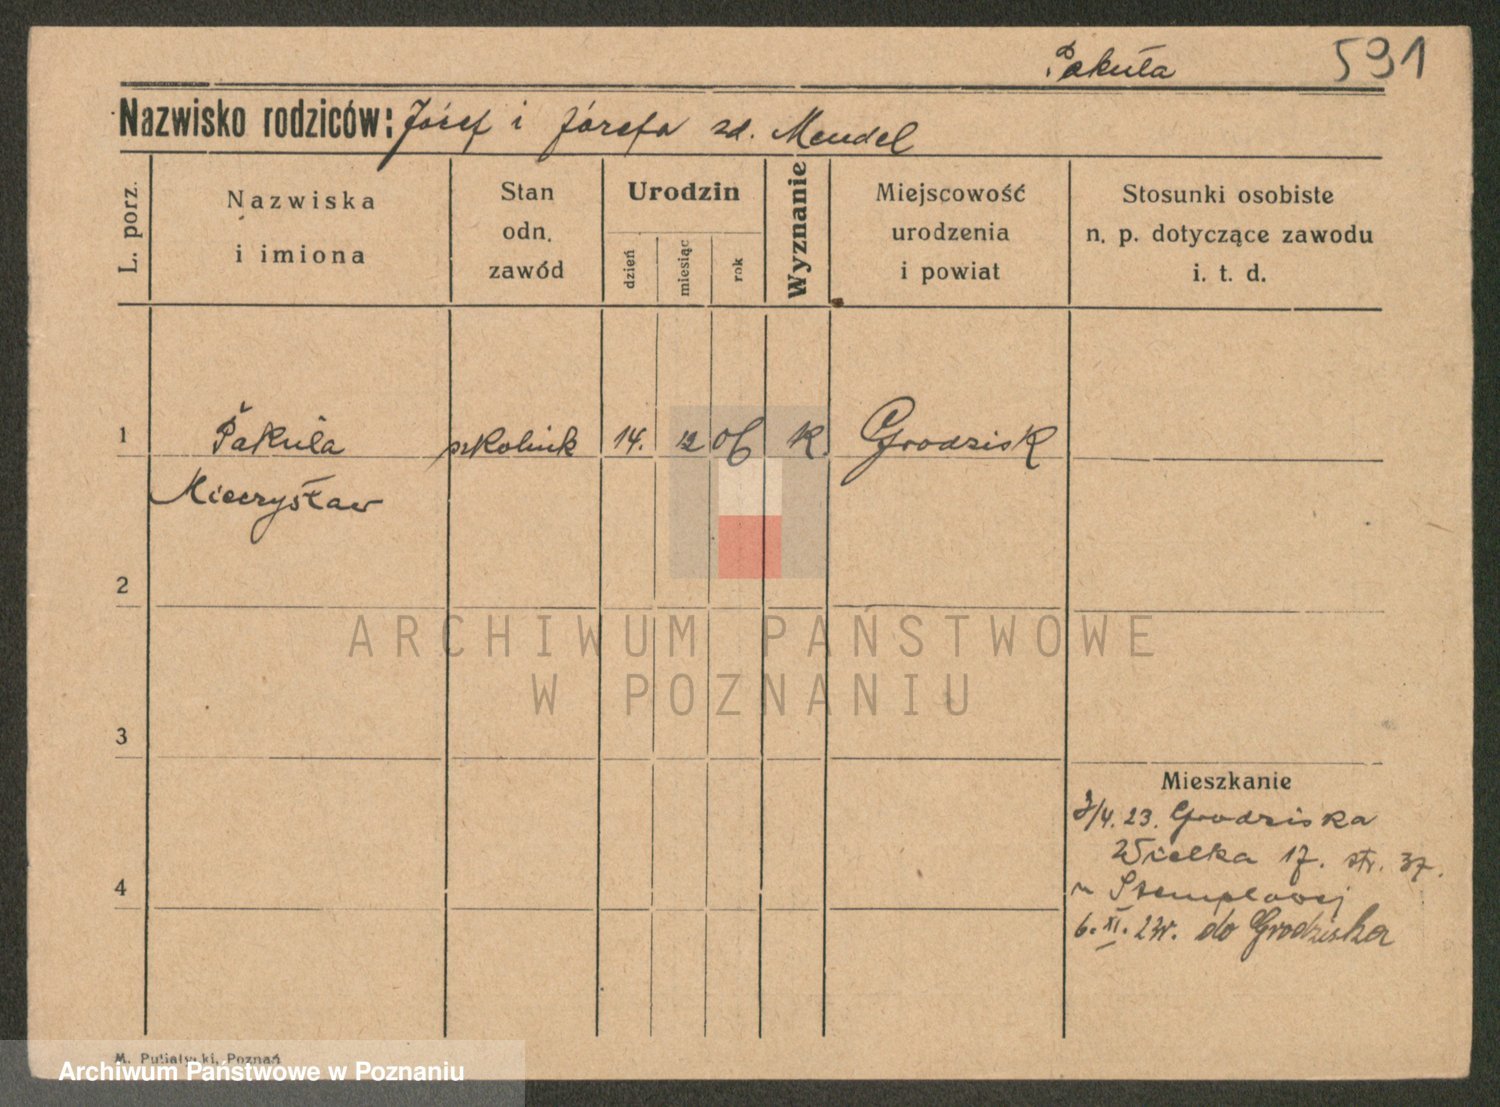 Pakuła
591
Nazwisko rodziców: Józef i Józefa zd. Mendel
L. porz.
Nazwiska
i imiona
Stan
odn.
zawód
Urodzin
dzień
miesiąc
rok
Wyznanie
Miejscowość
urodzenia
i powiat
Stosunki osobiste
n. p. dotyczące zawodu
i. t. d.
1 Pakuła szkolnik 14. 12 06 k. Grodzisk
Mieczysław
2
ARCHIWUM PAŃSTWOWE
W POZNANIU
3
Mieszkanie
/4. 23. Grodziska
Wielka 17. str. 37.
6. XI. do Grodziska
4
M. Putiatycki, Poznań
Archiwum Państwowe w Poznaniu